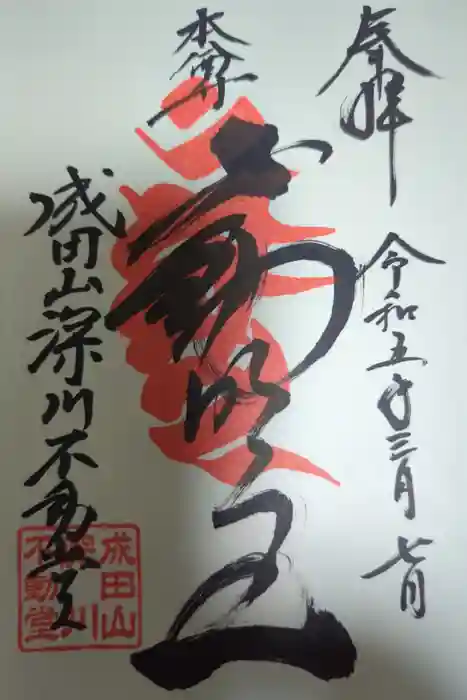 奉拝
令和五年三月七日
本尊
不動明王
成田山深川不動堂
成田山
深川
不動堂